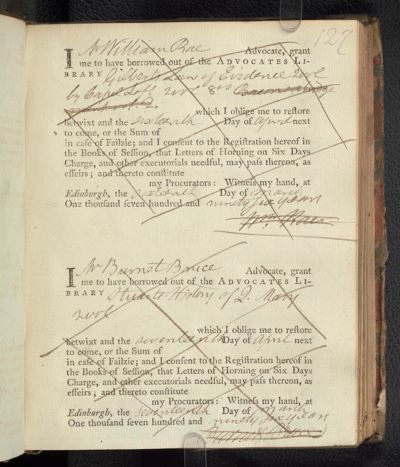 127
I Mr William Rae Advocate, grant
me to have borrowed out of the ADVOCATES LI-
BRARY Gilberts Law of Evidence 2 vol
by Capel Loft 8vo
which I oblige me to restore
betwixt and the sixteenth Day of April next
to come, or the Sum of
in case of Failzie; and I consent to the Registration hereof in
the Books of Session, that Letters of Horning on Six Days
Charge, and other executorials needful, may pass thereon, as
effeirs; and thereto constitute
my Procurators: Witness my hand, at
Edinburgh, the sixteenth Day of March
One thousand seven hundred and ninety six years
Wm. Rae
I Mr Burnet Bruce Advocate, grant
me to have borrowed out of the ADVOCATES LI-
BRARY Stuarts History of Q. Mary
2 vol
which I oblige me to restore
betwixt and the seventeenth Day of April next
to come, or the Sum of
in case of Failzie; and I consent to the Registration hereof in
the Books of Session, that Letters of Horning on Six Days
Charge, and other executorials needful, may pass thereon, as
effeirs; and thereto constitute
my Procurators: Witness my hand, at
Edinburgh, the seventeenth Day of March
One thousand seven hundred and ninety six years
Burnet Bruce